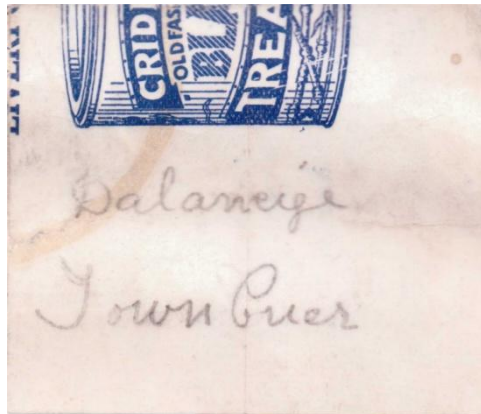 CRID
OLD FAS
TREA
Dalaneije
Town Cuer